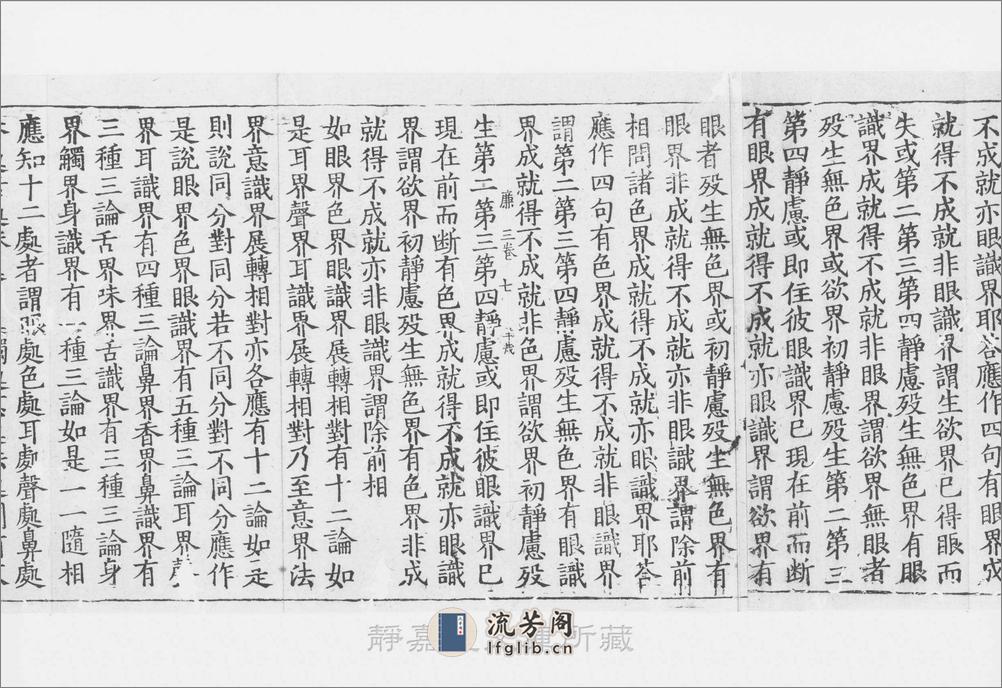 不成就亦眼識界耶答應作四句有眼界成
就得不成就非眼識界謂生欲界已得眼而
失或第二第三第四靜慮歿生無色界有眼
識界成就得不成就非眼界謂欲界無眼者
歿生無色界或欲界初靜慮歿生第二第三
第四靜慮或即住彼眼識界已現在前而斷
有眼界成就得不成就亦眼識界謂欲界有
眼者歿生無色界或初靜慮歿生無色界有
眼界非成就得不成就亦非眼識界謂除前
相問諸色界成就得不成就亦眼識界耶答
應作四句有色界成就得不成就非眼識界
謂第二第三第四靜慮歿生無色界有眼識
界成就得不成就非色界謂欲界初靜慮歿
廉 三卷 七
生第二第三第四靜慮或即住彼眼識界已
現在前而斷有色界成就得不成就亦眼識
界謂欲界初靜慮歿生無色界有色界非成
就得不成就亦非眼識界謂除前相
如眼界色界眼識界展轉相對有十二論如
是耳界聲界耳識界展轉相對乃至意界法
界意識界展轉相對亦各應有十二論如是
則說同分對同分若不同分對不同分應作
是說眼界色界眼識界有五種三論耳界聲
界耳識界有四種三論鼻界香界鼻識界有
三種三論舌界味界舌識界有三種三論身
界觸界身識界有一種三論如是一一隨相
應知十二處者謂眼處色處耳處聲處鼻處
靜嘉 所藏
流芳阁
lfglib.cn